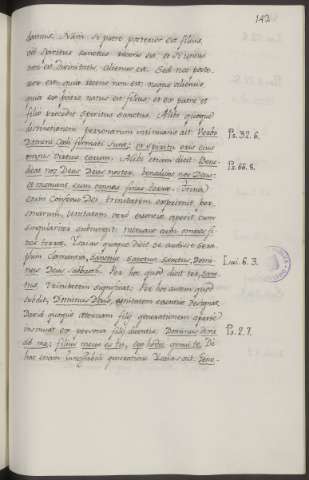 142
Nam si patre posterior est filius,
vel spiritus sanctus utroque, et si unius
non est divinitatis, alienus est. Sed nec poste-
rior est, quia neque alienus
quia ex patre natus est filius, et ex patre et
filio procedit spiritus sanctus. Alibi quoque
distinctionem personarum insinuans ait: Verbo
Domini cœli firmati sunt, et spiritu oris eius
omnis virtus eorum. Alibi etiam dicit: Bene-
dicat nos Deus Deus noster, benedicat nos Deus,
et metuant eum omnes fines terræ. Trina
enim confessio Dei trinitatem exprimit per-
sonarum, unitatem vero essentiæ aperit cum
singulariter subiungit: metuant eum omnes fi-
nes terræ. Isaias quoque dicit se audisse Sera-
phim clamantia, Sanctus Sanctus Sanctus, Domi-
nus Deus sabbaoth. Per hoc quod dicit ter, Sanc-
tus Trinitatem significat; Per hoc autem quod
subdit, Dominus Deus, unitatem essentiæ designat.
David quoque æternam filij generationem aperte
insinuat ex persona filij dicentis: Dominus dixit
ad me, filius meus es tu, ego hodie genui te. De
hac enim ineffabili generatione Isaias ait: Gene-
Ps. 32. 6.
Ps. 66. 8.
Isai. 6. 3.
Ps. 2. 7.